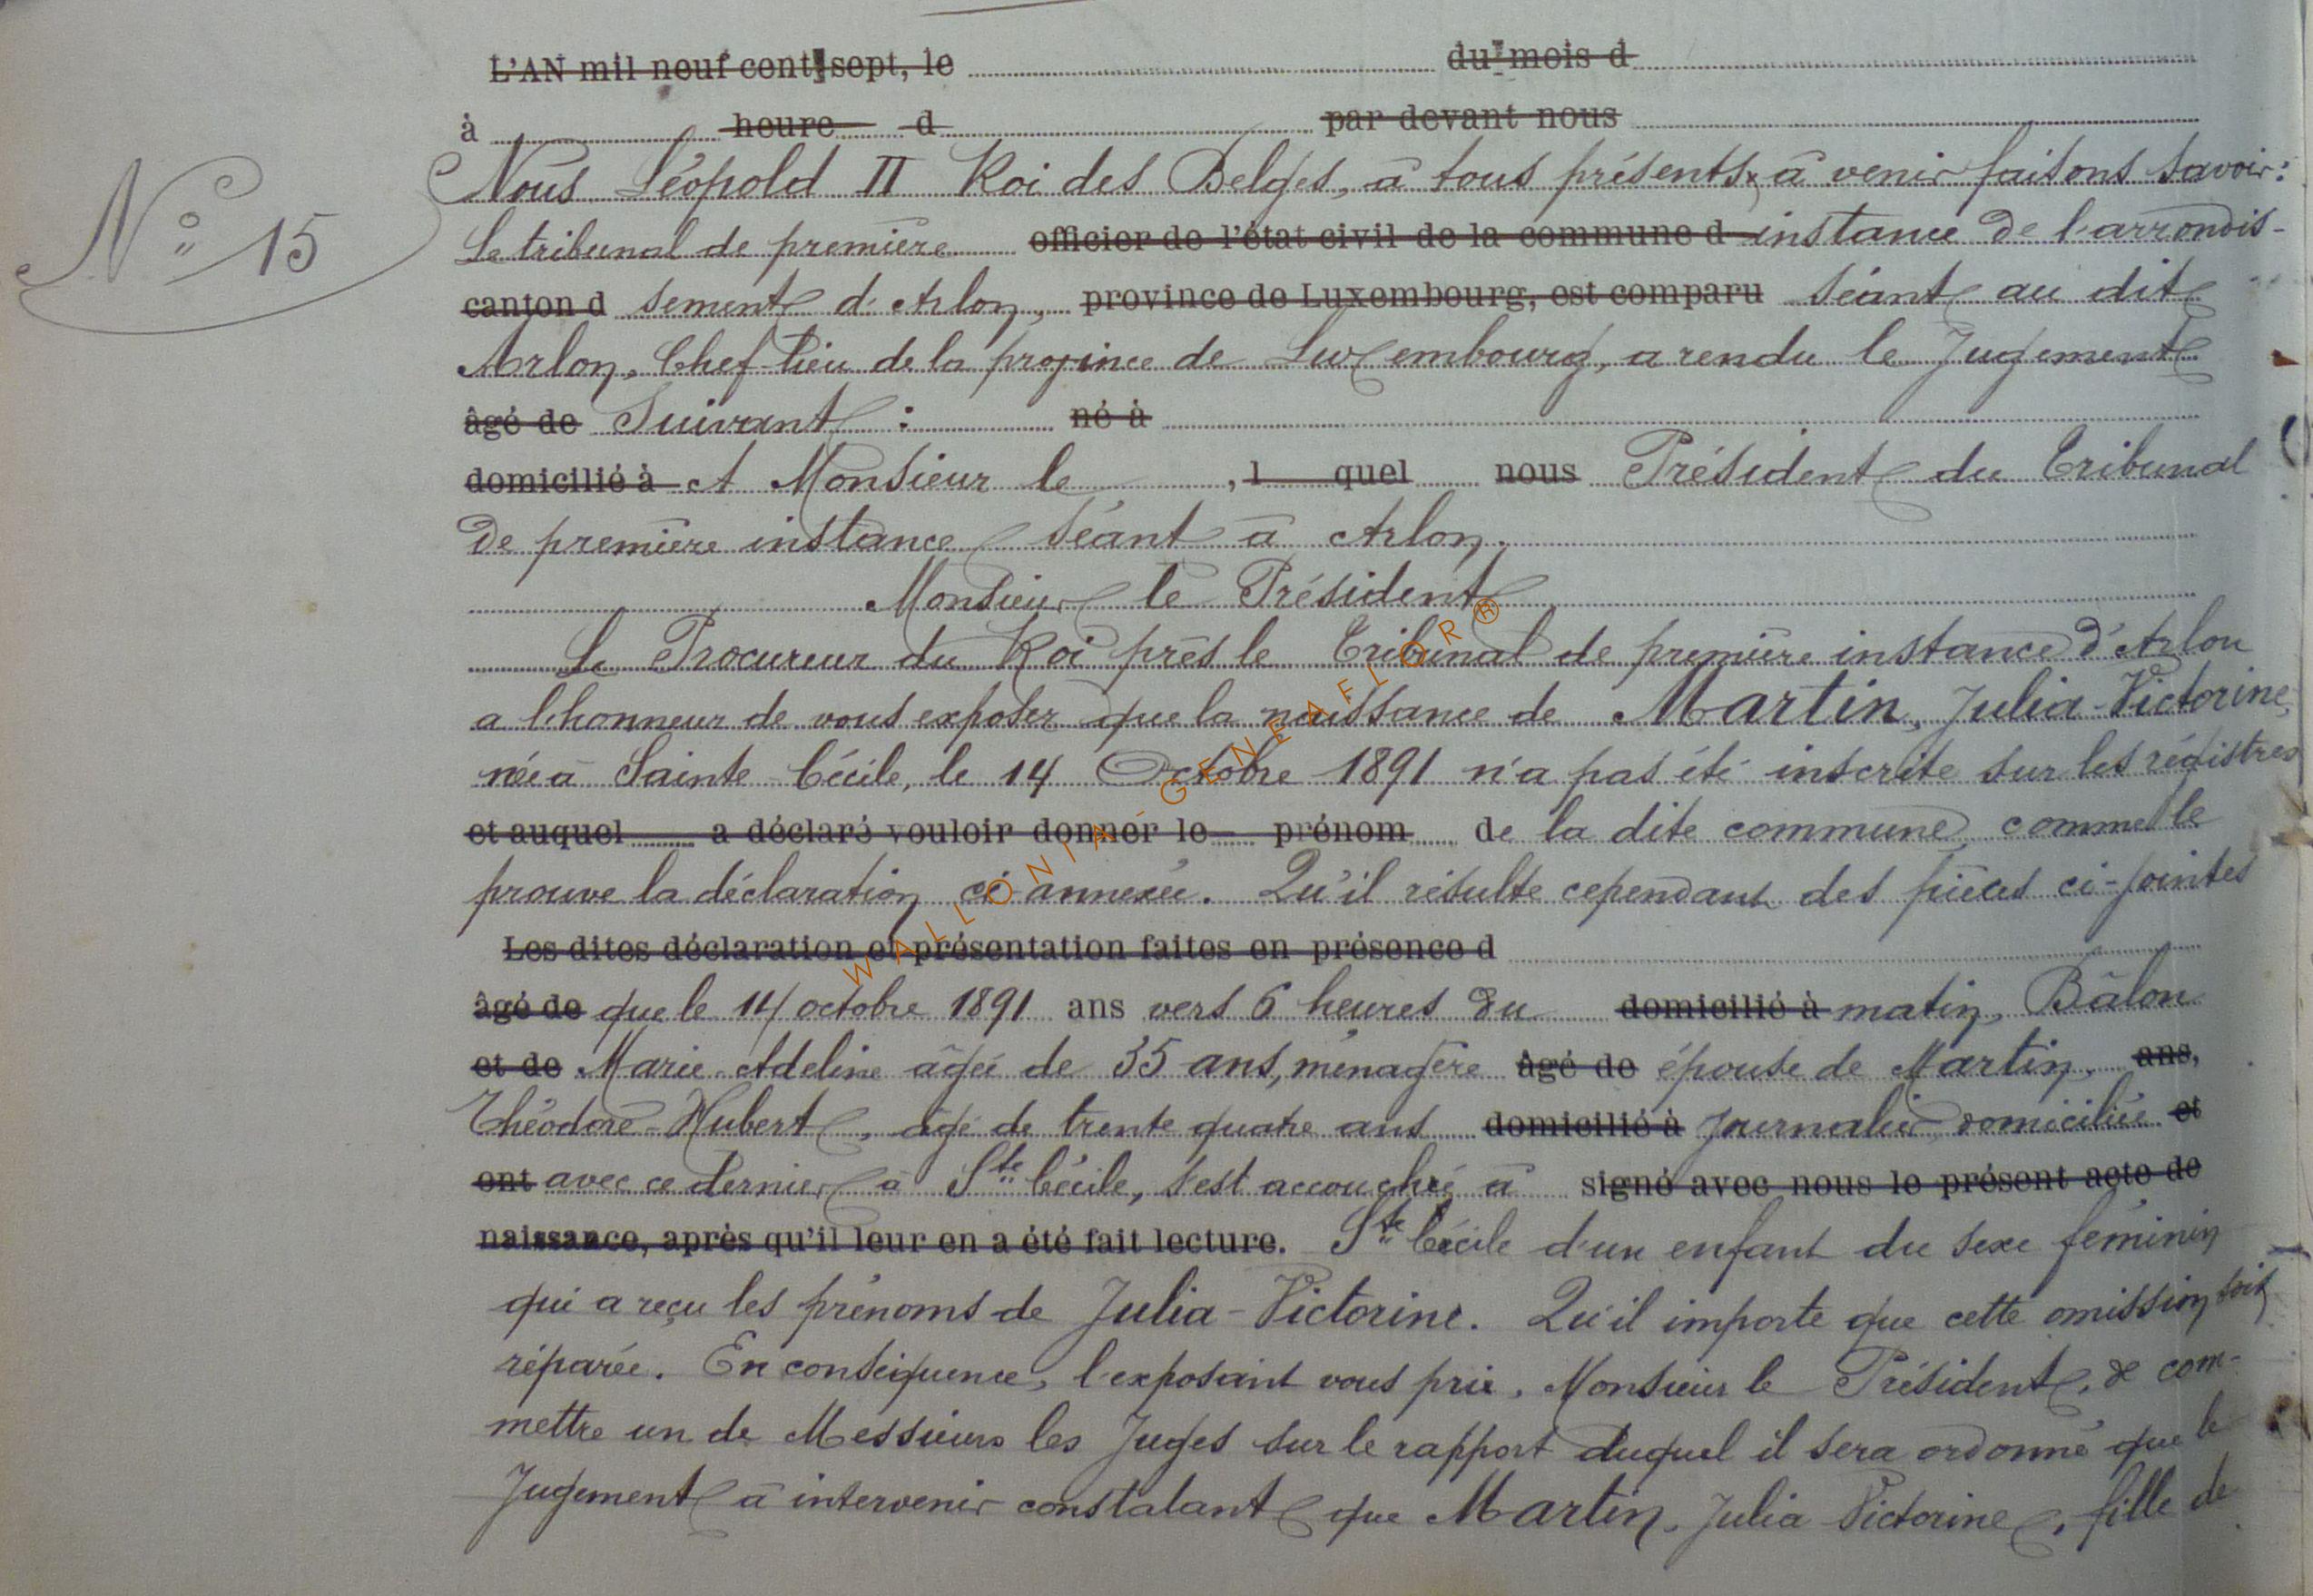 L'AN mil neuf cent sept, le du mois d
à heure d par devant nous
Nous Léopold II Roi des Belges, à tous présents, à venir faisons savoir:
N° 15
Le tribunal de première officier de l'état civil de la commune d instance de l'arrondis-
canton d sement d'Arlon, province de Luxembourg, est comparu séant au dit
Arlon, Chef-lieu de la province de Luxembourg, a rendu le Jugement
âgé de Suivant : né à
domicilié à A Monsieur le , l quel nous Président du Tribunal
de première instance séant à Arlon.
Monsieur le Président
Le Procureur du Roi près le Tribunal de première instance d'Arlon
a l'honneur de vous exposer que la naissance de Martin, Julia-Victorine,
née à Sainte Cécile, le 14 Octobre 1891 n'a pas été inscrite sur les régistres
et auquel a déclaré vouloir donner le prénom de la dite commune comme le
prouve la déclaration ci-annexée. Qu'il résulte cependant des pièces ci-jointes
Les dites déclaration et présentation faites en présence d
âgé de que le 14 octobre 1891 ans vers 6 heures du domicilié à matin, Bâlon
et de Marie-Adeline âgée de 35 ans, ménagère âgé de épouse de Martin, ans,
Théodore-Hubert, âgé de trente quatre ans domicilié à journalier domiciliée et
ont avec ce dernier à Ste Cécile, s'est accouchée à signé avec nous le présent acte de
naissance, après qu'il leur en a été fait lecture. Ste Cécile d'un enfant du sexe féminin
qui a reçu les prénoms de Julia-Victorine. Qu'il importe que cette omission soit
réparée. En conséquence, l'exposant vous prie, Monsieur le Président, de com-
mettre un de Messieurs les Juges sur le rapport duquel il sera ordonné que le
Jugement à intervenir constatant que Martin, Julia Victorine, fille de
WALLONIA-GENEAFLOR®